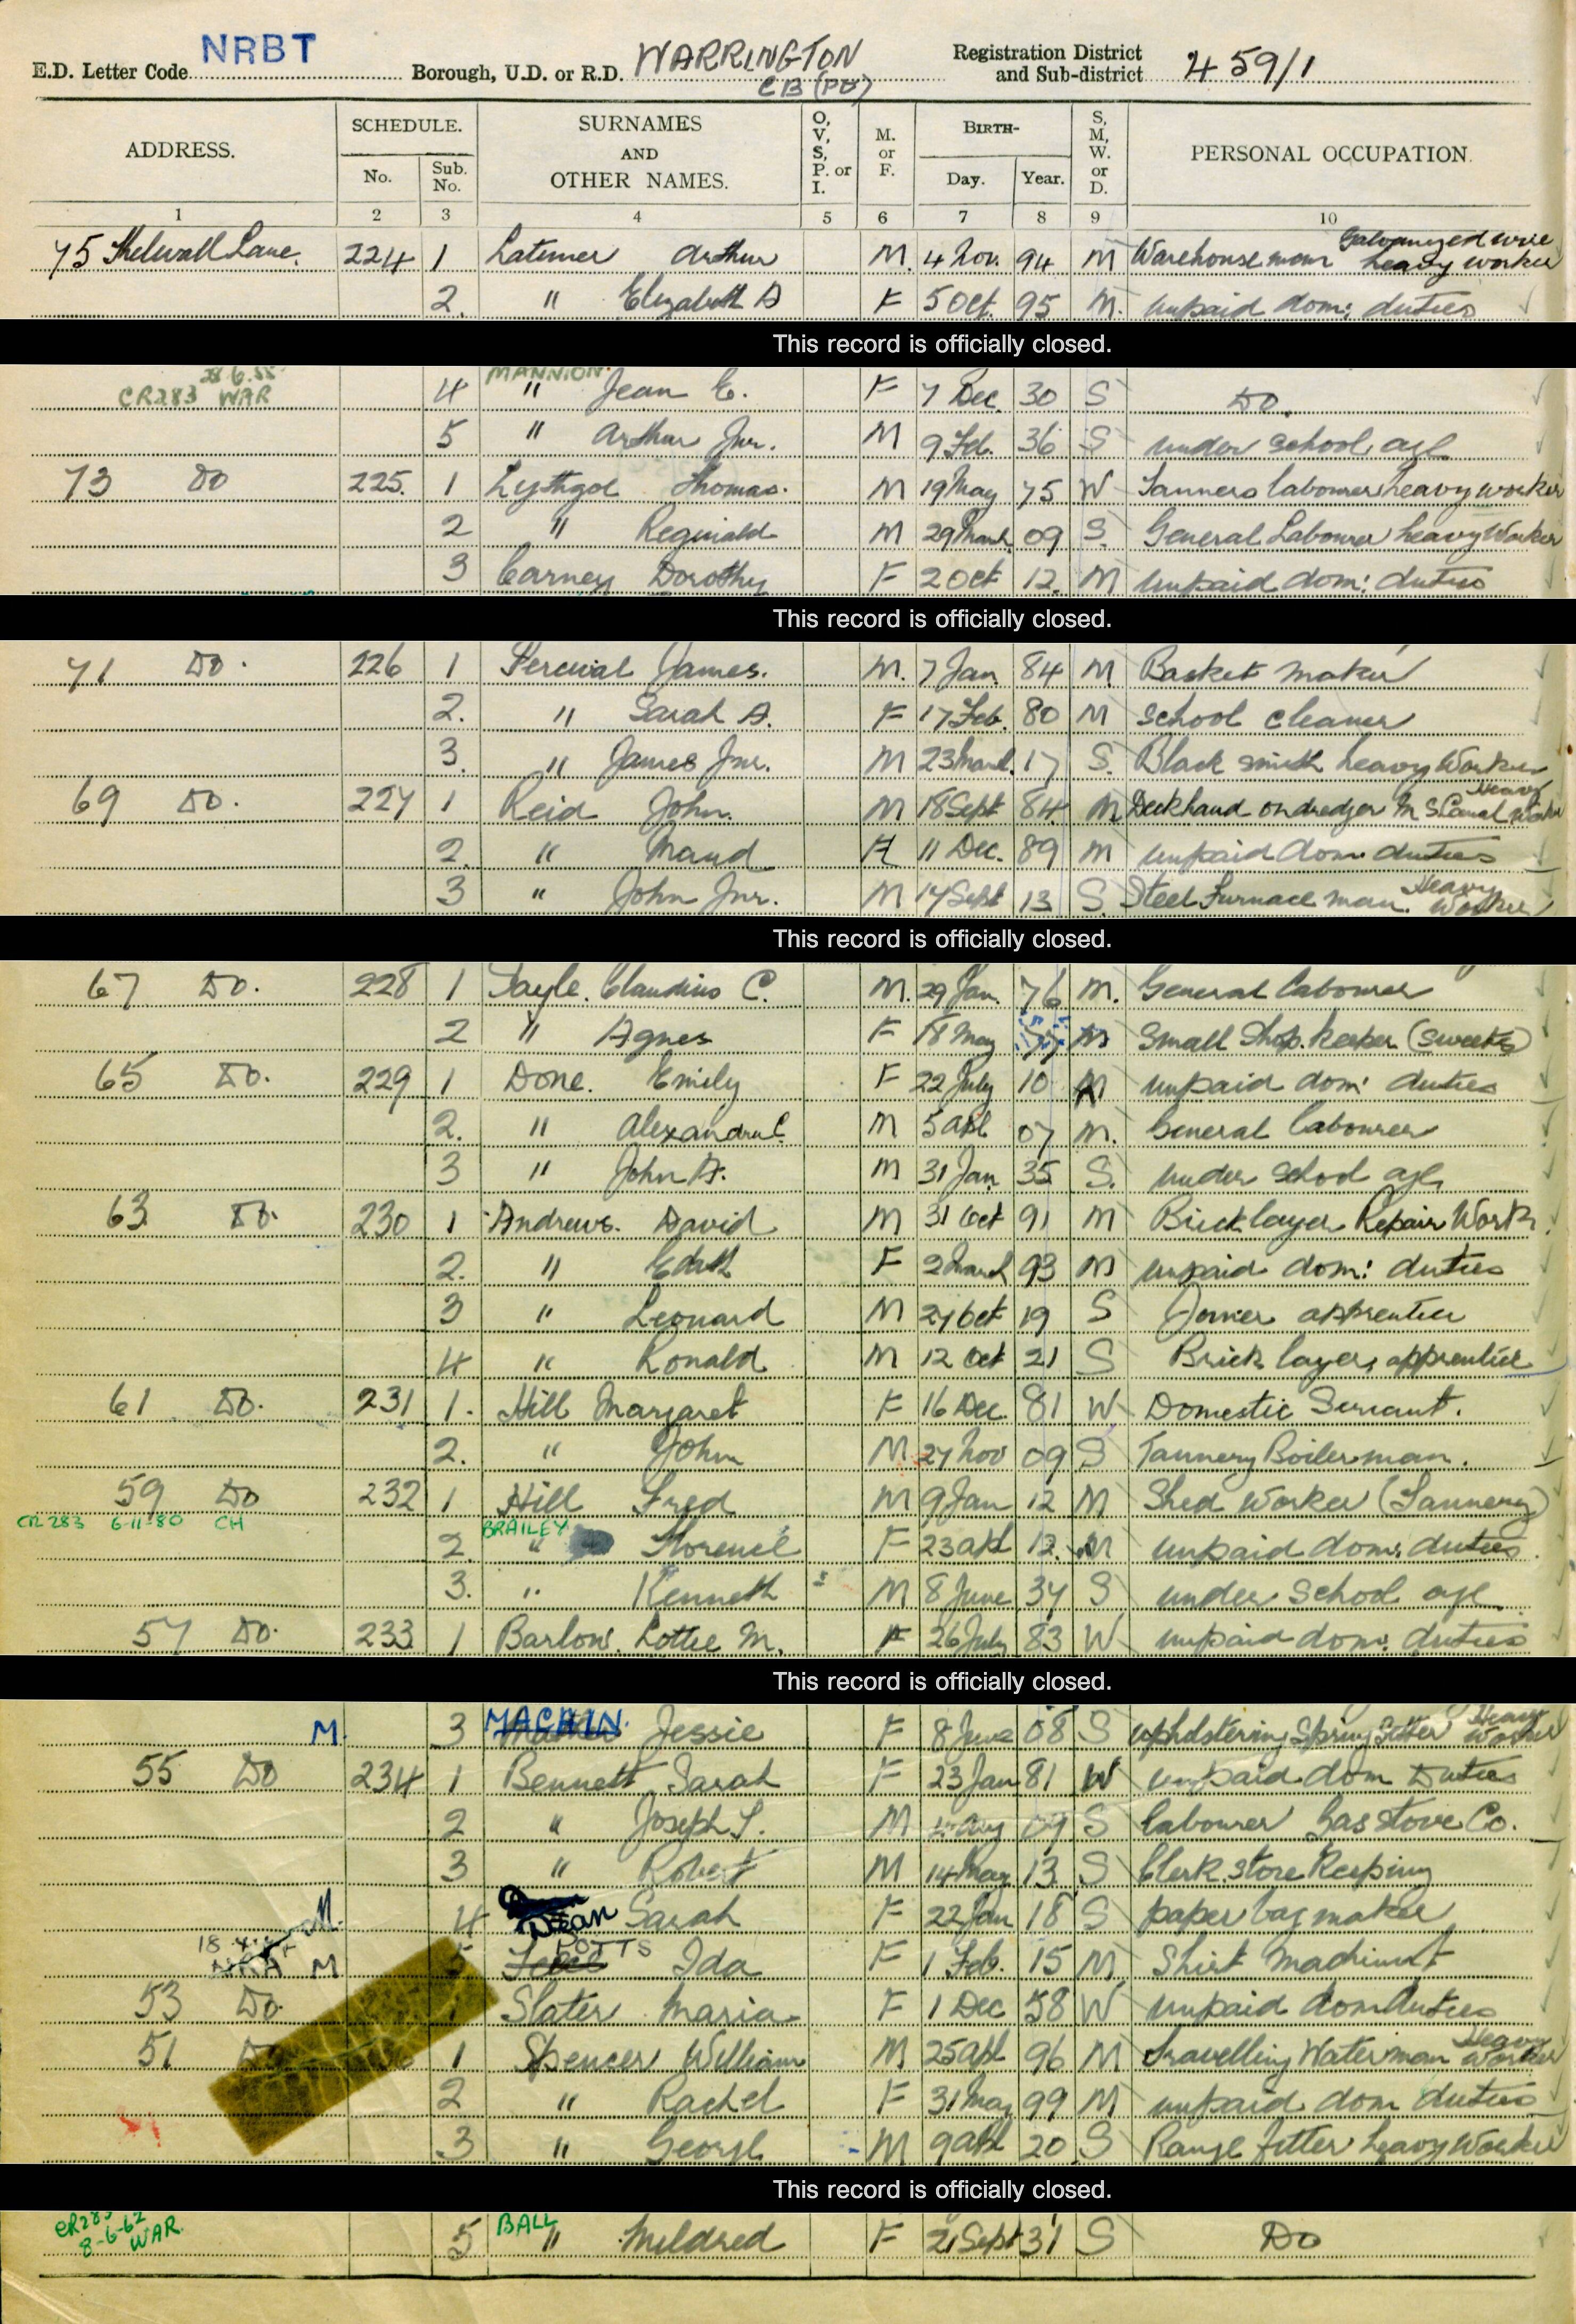 E.D. Letter Code NRBT Borough, U.D. or R.D. WARRINGTON CB (PT) Registration District and Sub-district 459/1
ADDRESS. SCHEDULE. No. Sub. No. SURNAMES AND OTHER NAMES. O, V, S, P. or I. M. or F. BIRTH- Day. Year. S, M, W. or D. PERSONAL OCCUPATION.
1 2 3 4 5 6 7 8 9 10
75 Thelwall Lane. 224 1 Latimer Arthur M. 4 Nov. 94 M Warehouse man Galvanized wire heavy worker
2. " Elizabeth A F 5 Oct. 95 M. unpaid dom: duties
This record is officially closed.
CR283 WAR 4 MANNION " Jean E. F 7 Dec. 30 S Do.
5 " Arthur Jnr. M 9 Feb. 36 S under school age
73 Do 225. 1 Lythgoe Thomas. M 19 May 75 W Tanners labourer heavy worker
2 " Reginald M 29 March 09 S. General Labourer heavy Worker
3 Carney Dorothy F 2 Oct 12. M unpaid dom: duties
This record is officially closed.
71 Do. 226 1 Percival James. M. 7 Jan. 84 M Basket maker
2. " Sarah A. F 17 Feb. 80 M school cleaner
3. " James Jnr. M 23 March. 17 S. Black smith heavy Worker
69 Do. 227 1 Reid John. M 18 Sept 84 M Deckhand on dredger M S Canal Heavy Worker
2. " Maud F 11 Dec. 89 M unpaid dom. duties
3 " John Jnr. M 14 Sept 13 S. Steel Furnace man. Heavy Worker
This record is officially closed.
67 Do. 228 1 Sayle. Claudius C. M. 29 Jan. 76 M. General labourer
2 " Agnes F 18 May 77 M Small Shop. keeper (sweets)
65 Do. 229 1 Done. Emily F 22 July 10 M unpaid dom: duties
2. " Alexandra C. M 5 Apl 07 M. General labourer
3 " John A. M 31 Jan. 35 S. under school age
63 Do. 230 1 Andrews. David M 31 Oct 91 M Bricklayer Repair Work.
2. " Edith F 2 March 93 M unpaid dom: duties
3 " Leonard M 27 Oct 19 S Joiner apprentice
4 " Ronald M 12 Oct 21 S Brick layers apprentice
61 Do. 231 1. Hill Margaret F 16 Dec. 81 W Domestic Servant.
2. " John M 27 Nov 09 S Tannery Boilerman.
59 Do 232 1 Hill Fred M 9 Jan 12 M Shed Worker (Tannery)
CR 283 6-11-80 CH 2. BRAILEY " Florence F 23 Apl 12. M unpaid dom: duties.
3. " Kenneth M 8 June 37 S under school age
57 Do. 233 1 Barlow. Lottie M. F 26 July 83 W unpaid dom: duties
This record is officially closed.
M. 3 MACHIN. Jessie F 8 June 08 S upholstering Spring Setter Heavy Worker
55 Do 234 1 Bennett Sarah F 23 Jan 81 W unpaid dom Duties
2 " Joseph S. M Aug 07 S labourer Gas Stove Co.
3 " Robert M 14 May 13 S Clerk. store Keeping
M. 4 Dean Sarah F 22 Jan 18 S paper bag maker
M 5 POTTS Ida F 1 Feb. 15 M Shirt machinist
53 Do 1 Slater Maria F 1 Dec 58 W unpaid dom duties
51 Do 1 Spencer William M 25 Apl 96 M Travelling Waterman Heavy Worker
2 " Rachel F 31 May 99 M unpaid dom duties
3 " George M 9 Apl 20 S Range fitter heavy Worker
This record is officially closed.
8-6-62 WAR. 5 BALL " Mildred F 21 Sept 31 S Do